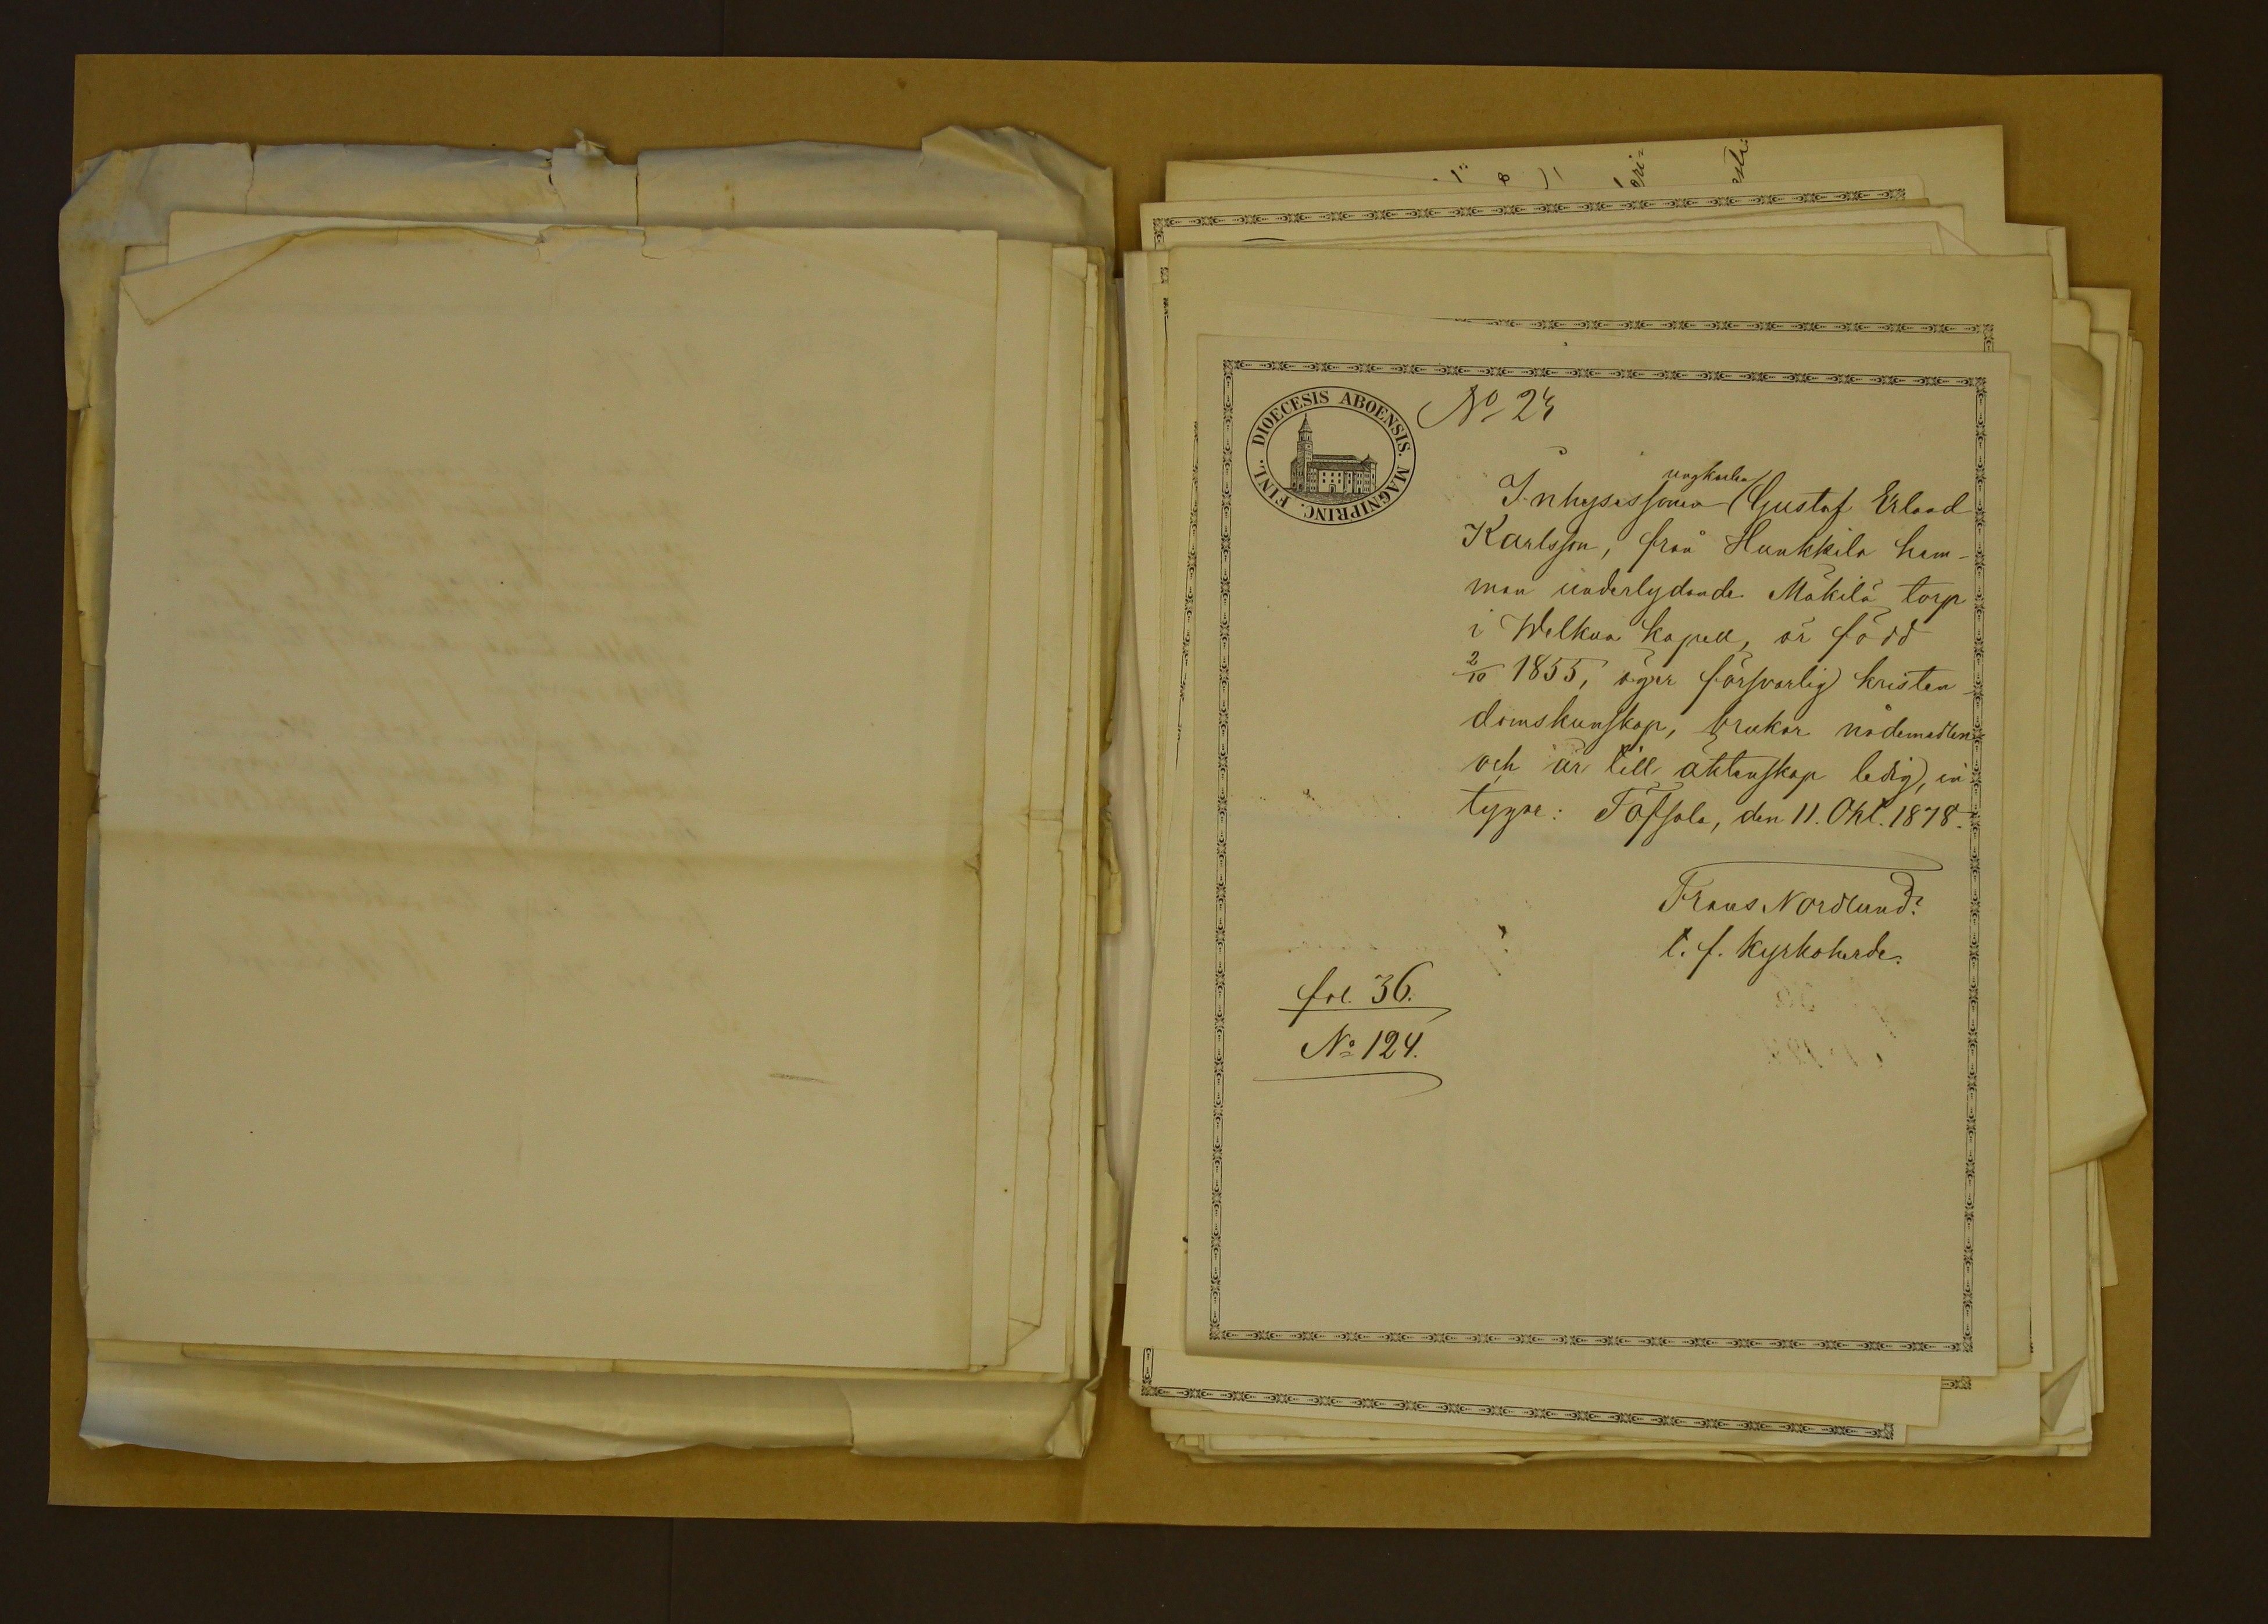 DIOECESIS ABOENSIS. MAGNIPRINC. FINL.
No 24
ungkarlen
Inhysessonen Gustaf Erland
Karlsson, från Hunkkila hem-
man underlydande Mäkilä torp
i Welkua kapell, är född
2/10 1855, äger försvarlig kristen-
domskunskap, brukar nådemedlen
och är till äktenskap ledig, in
tygar: Töfsala, den 11. Okt. 1878.
Frans Nordlund.
t. f. Kyrkoherde.
fol. 36.
No 124.